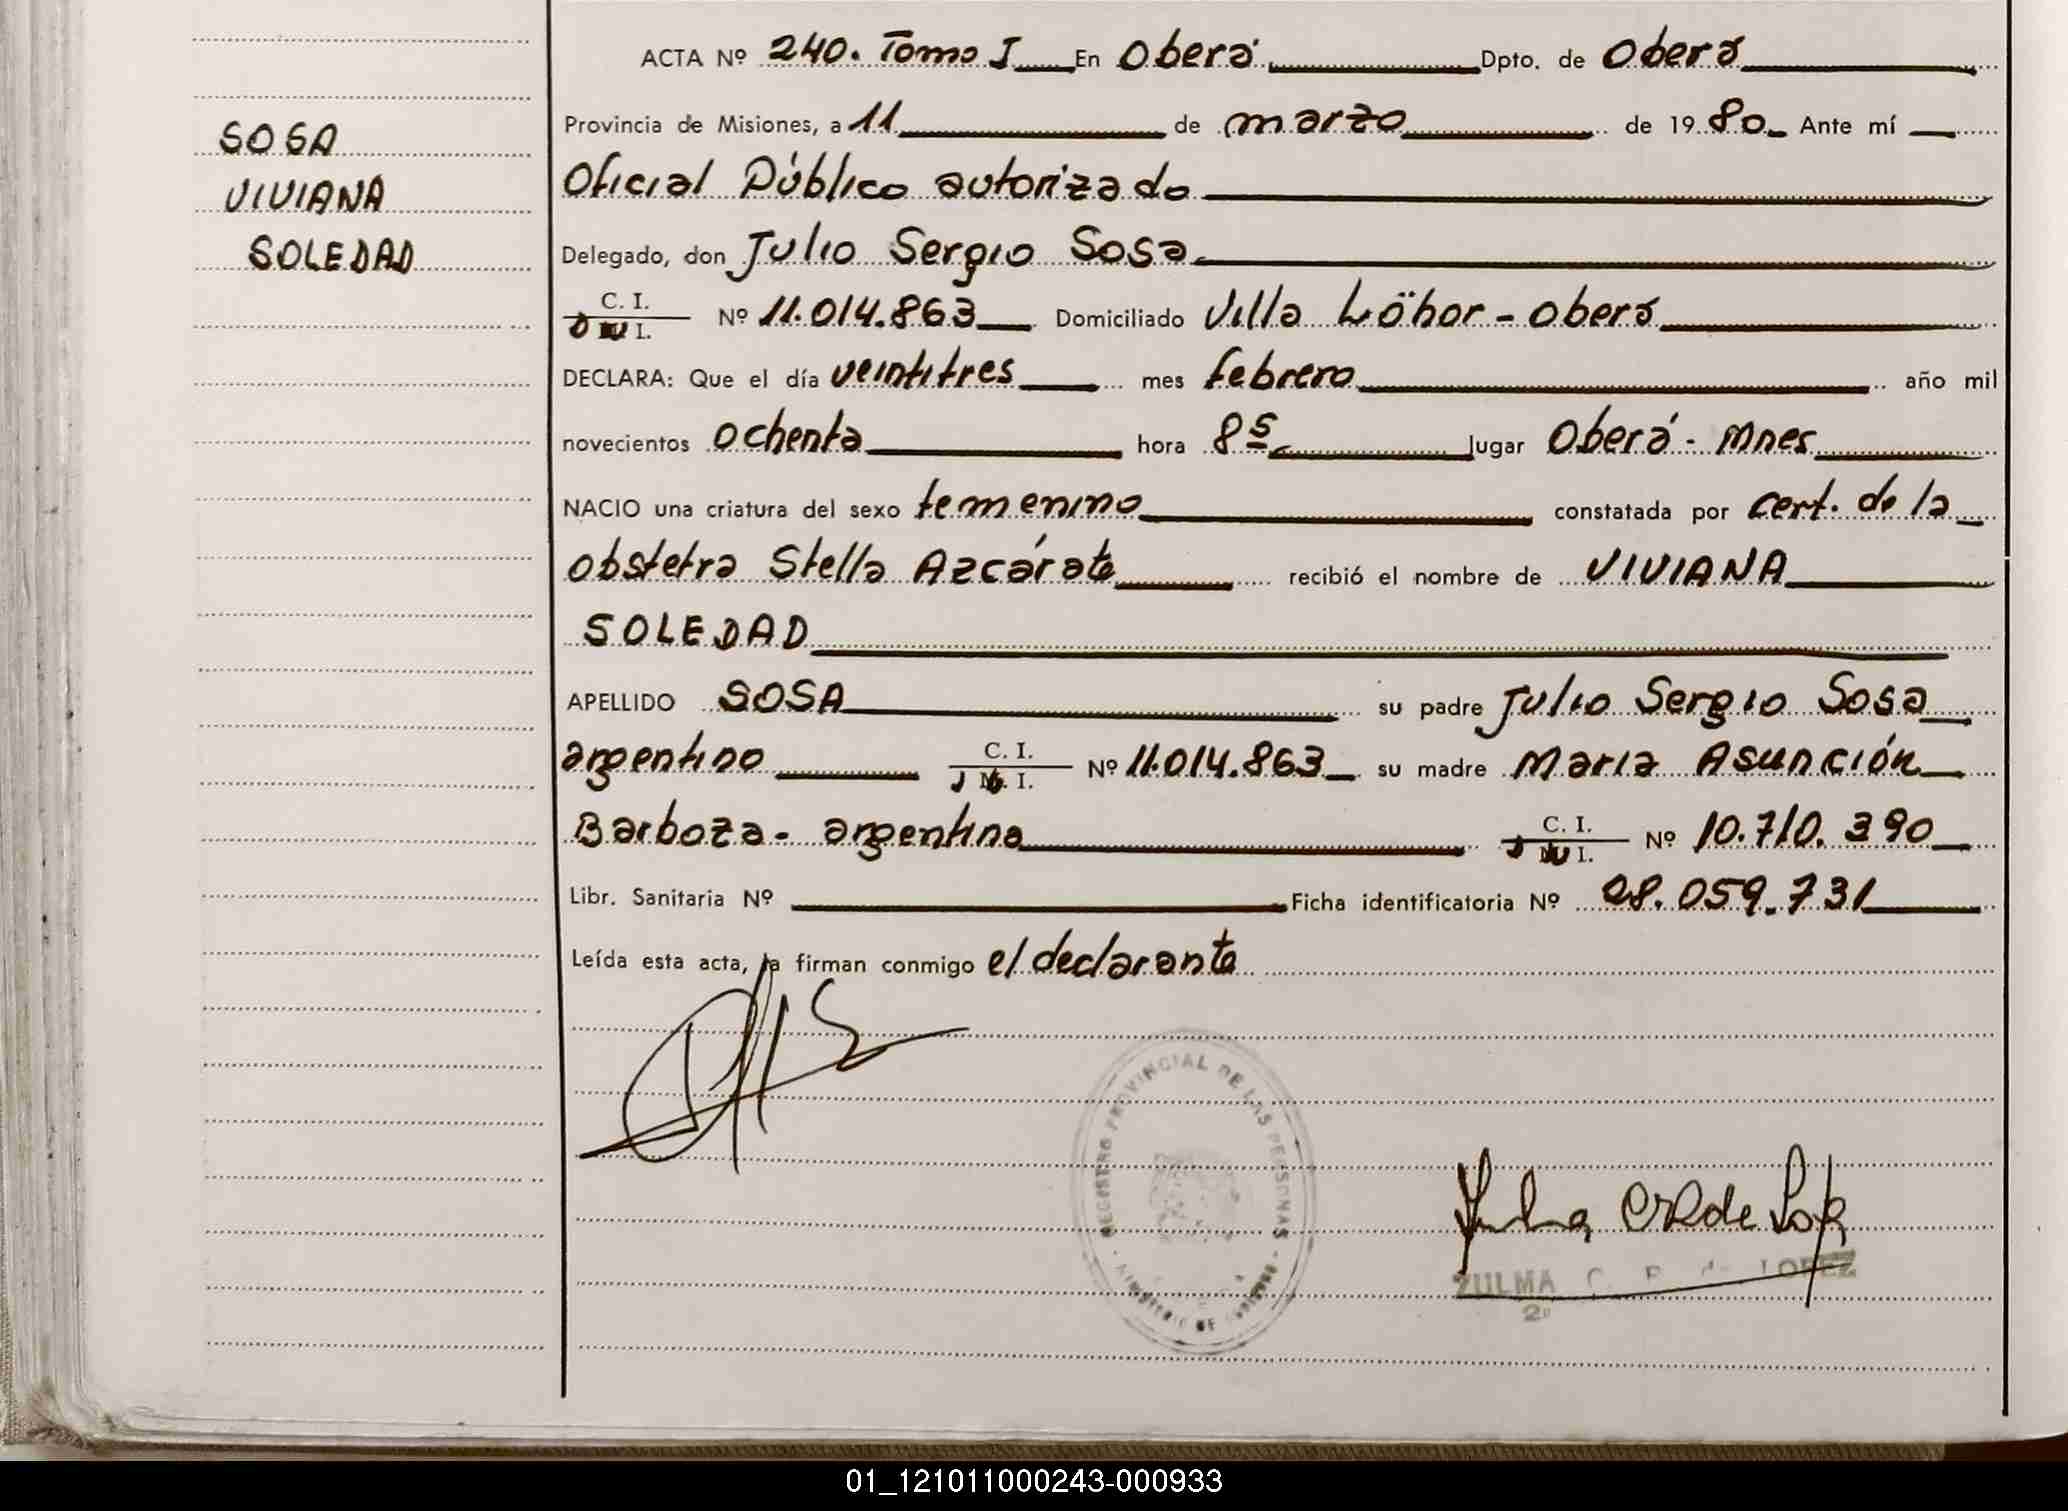 SOSA
VIVIANA
SOLEDAD
ACTA Nº 240. Tomo I En Oberá Dpto. de Oberá
Provincia de Misiones, a 11 de marzo de 1980 Ante mí
Oficial Público autorizado
Delegado, don Julio Sergio Sosa
C. I.
I. Nº 11.014.863 Domiciliado Villa Löhor - Oberá
DECLARA: Que el día veintitres mes febrero año mil
novecientos ochenta hora 8 5 lugar Oberá - Mnes
NACIO una criatura del sexo femenino constatada por cert. de la
obstetra Stella Azcárate recibió el nombre de VIVIANA
SOLEDAD
APELLIDO SOSA su padre Julio Sergio Sosa
argentino C. I. Nº 11.014.863 su madre María Asunción
I.
Barboza - argentina C. I. Nº 10.710.390
I.
Libr. Sanitaria Nº Ficha identificatoria Nº 28.059.731
Leída esta acta, la firman conmigo el declarante
REGISTRO PROVINCIAL DE LAS PERSONAS
MINISTERIO DE GOBIERNO
ZULMA C. R. de LOPEZ
01_121011000243-000933